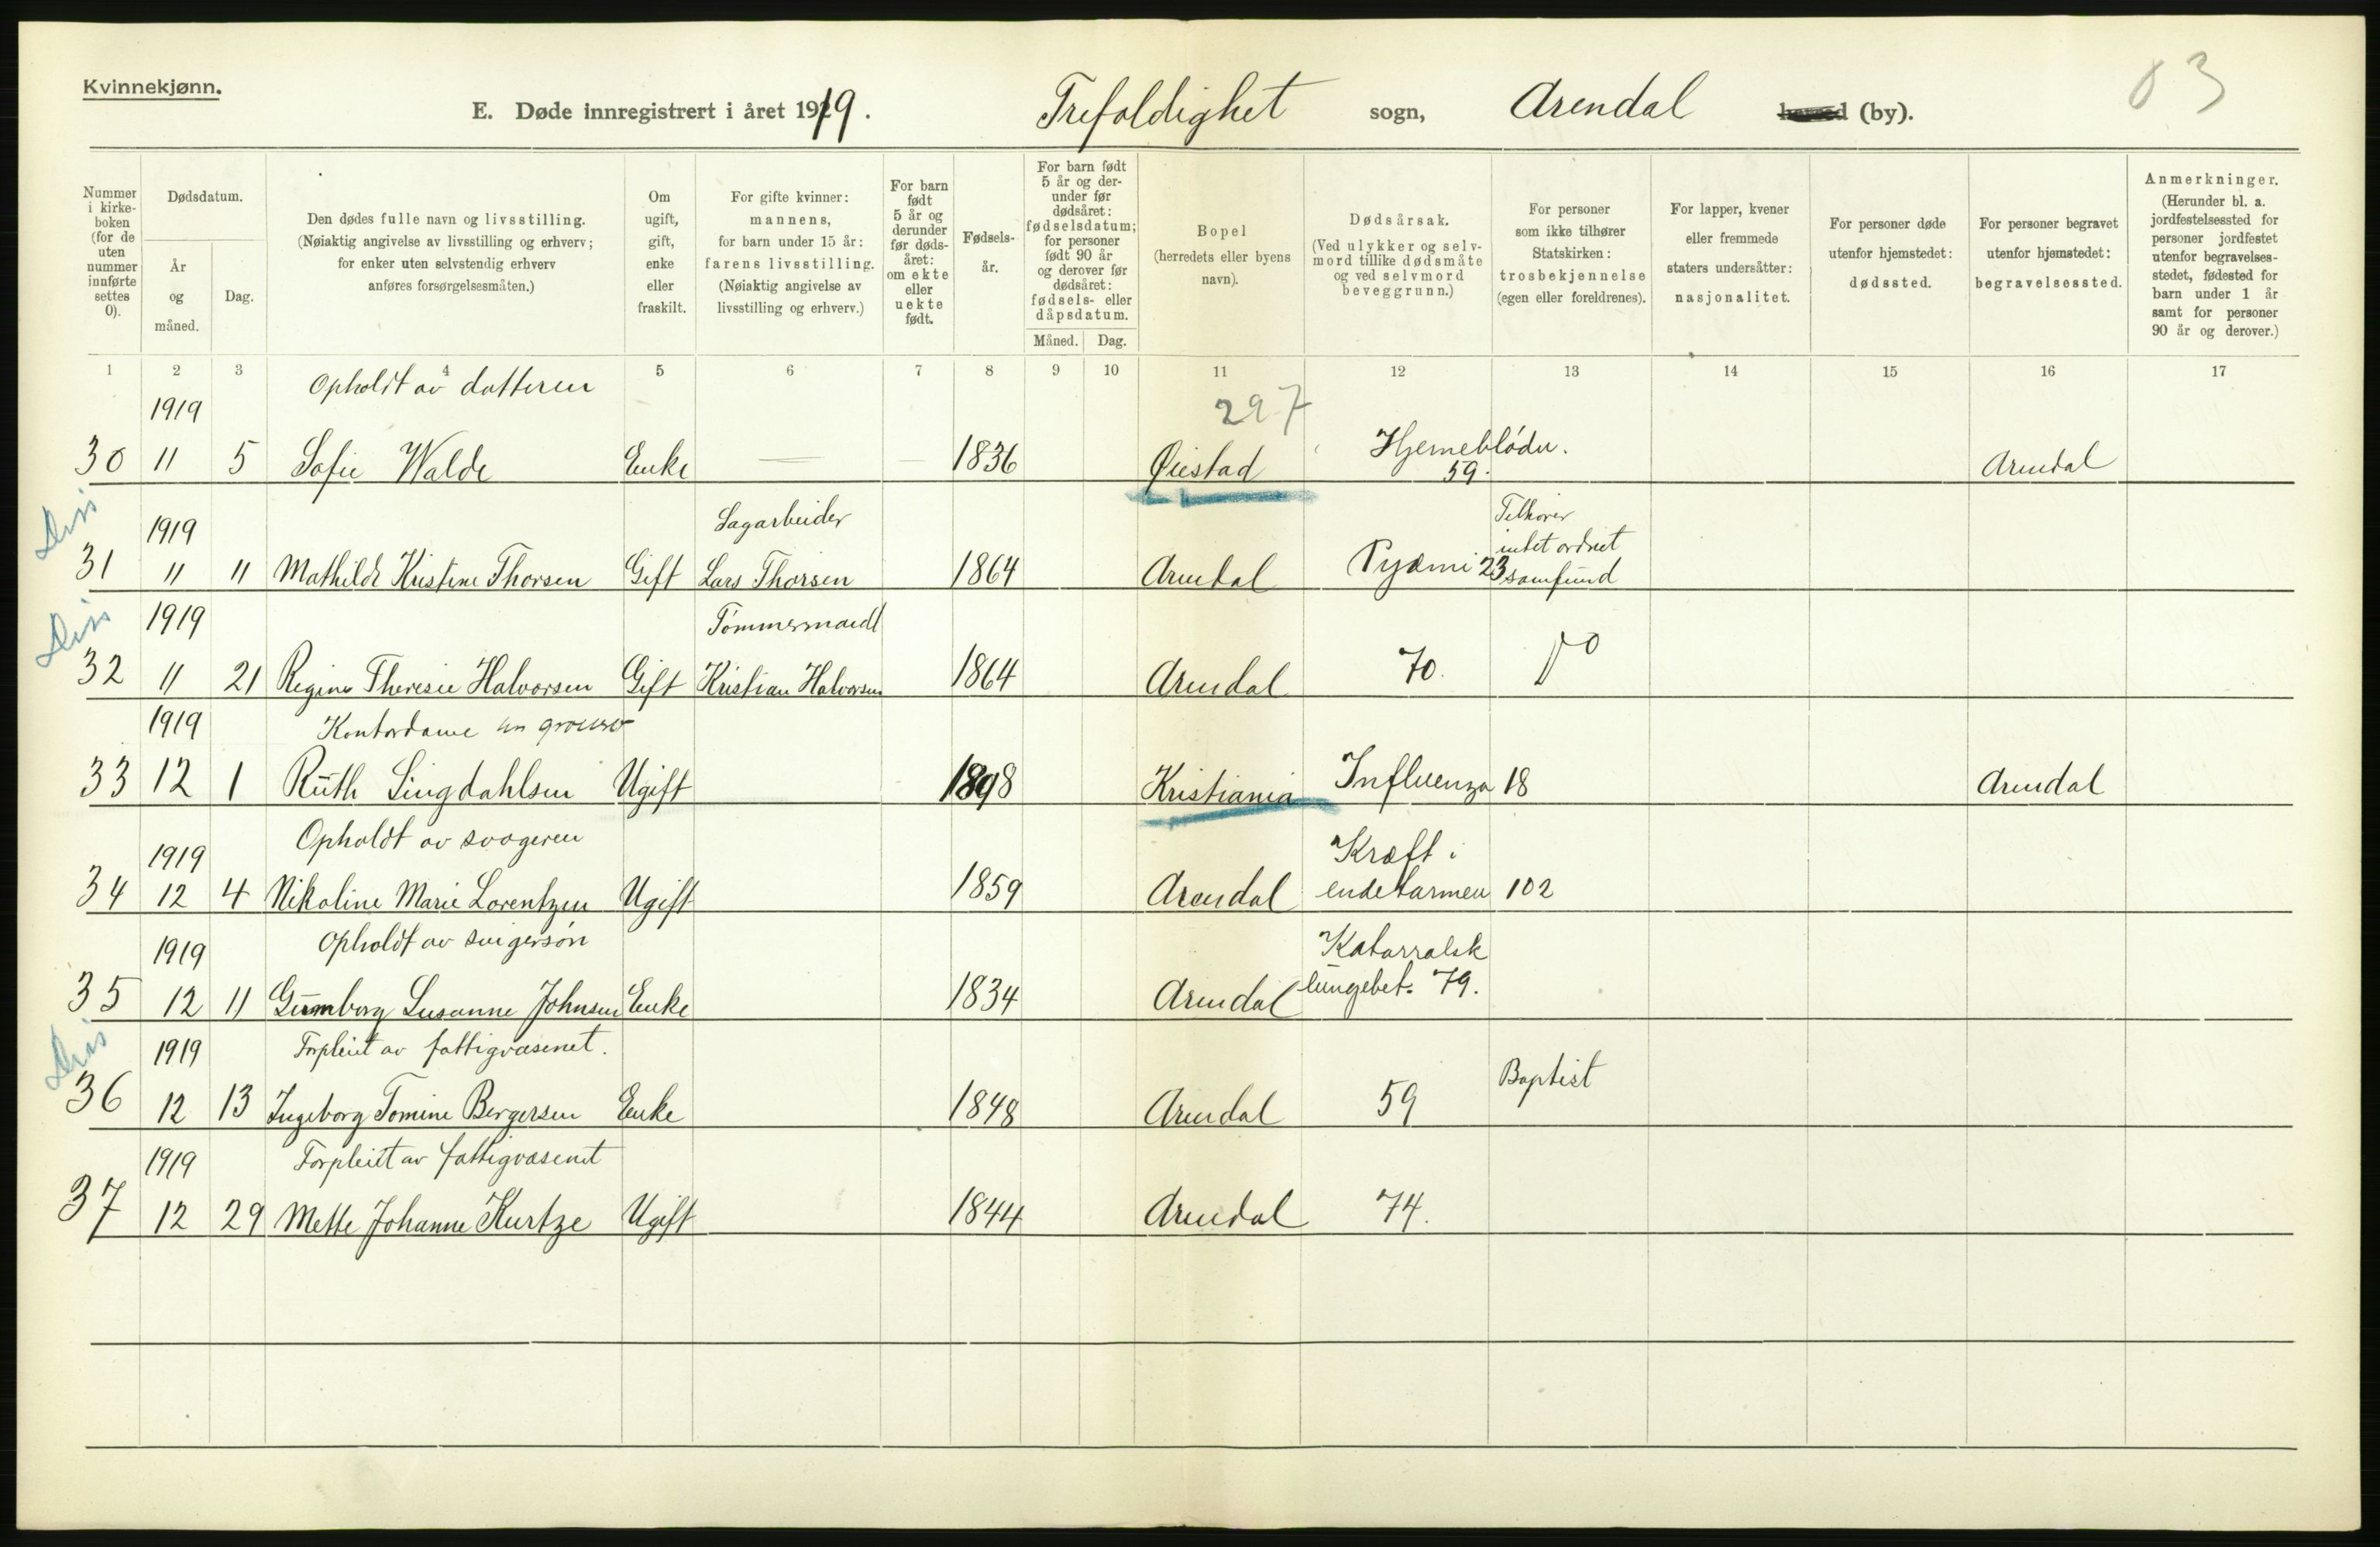 Kvinnekjønn.
E. Døde innregistrert i året 1919. Trefoldighet sogn, Arendal herred (by).
03
Nummer i kirkeboken (for de uten nummer innførte settes 0).
Dødsdatum.
År og måned.
Dag.
Den dødes fulle navn og livsstilling.
(Nøiaktig angivelse av livsstilling og erhverv;
for enker uten selvstendig erhverv
anføres forsørgelsesmåten.)
Om ugift, gift, enke eller fraskilt.
For gifte kvinner:
mannens,
for barn under 15 år:
farens livsstilling.
(Nøiaktig angivelse av
livsstilling og erhverv.)
For barn født 5 år og derunder før dødsåret: om ekte eller uekte født.
Fødselsår.
For barn født 5 år og derunder før dødsåret: fødselsdatum; for personer født 90 år og derover før dødsåret: fødsels- eller dåpsdatum.
Måned. Dag.
Bopel
(herredets eller byens
navn).
Dødsårsak.
(Ved ulykker og selvmord tillike dødsmåte og ved selvmord beveggrunn.)
For personer
som ikke tilhører
Statskirken:
trosbekjennelse
(egen eller foreldrenes).
For lapper, kvener
eller fremmede
staters undersåtter:
nasjonalitet.
For personer døde
utenfor hjemstedet:
dødssted.
For personer begravet
utenfor hjemstedet:
begravelsessted.
Anmerkninger.
(Herunder bl. a.
jordfestelsessted for
personer jordfestet
utenfor begravelses-
stedet, fødested for
barn under 1 år
samt for personer
90 år og derover.)
1 2 3 4 5 6 7 8 9 10 11 12 13 14 15 16 17
Opholdt av datteren
1919 297
30 11 5 Sofie Walde Enke — — 1836 Øiestad Hjerneblødn. 59. Arendal
Diss
1919 Sagarbeider Tilhører intet ordnet
31 11 11 Mathilde Kristine Thorsen Gift Lars Thorsen 1864 Arendal Pyæmi 23 samfund
Diss
1919 Tømmermand
32 11 21 Regine Theresie Halvorsen Gift Kristian Halvorsen 1864 Arendal 70. do
1919 Kontordame en gros
33 12 1 Ruth Lingdahlsen Ugift 1898 Kristiania Influenza 18 Arendal
Opholdt av svogeren
1919 Kræft i
34 12 4 Nikoline Marie Lorentzen Ugift 1859 Arendal endetarmen 102
1919 Opholdt av svigersøn Katarralsk
35 12 11 Gunborg Susanne Johnsen Enke 1834 Arendal lungebet. 79.
Diss
1919 Forpleiet av fattigvæsenet.
36 12 13 Ingeborg Tomine Bergersen Enke 1848 Arendal 59 Baptist
1919 Forpleiet av fattigvæsenet
37 12 29 Mette Johanne Kurtze Ugift 1844 Arendal 74.